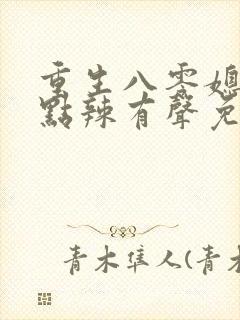 重生八零媳
點辣有聲免
青木隼人(青木